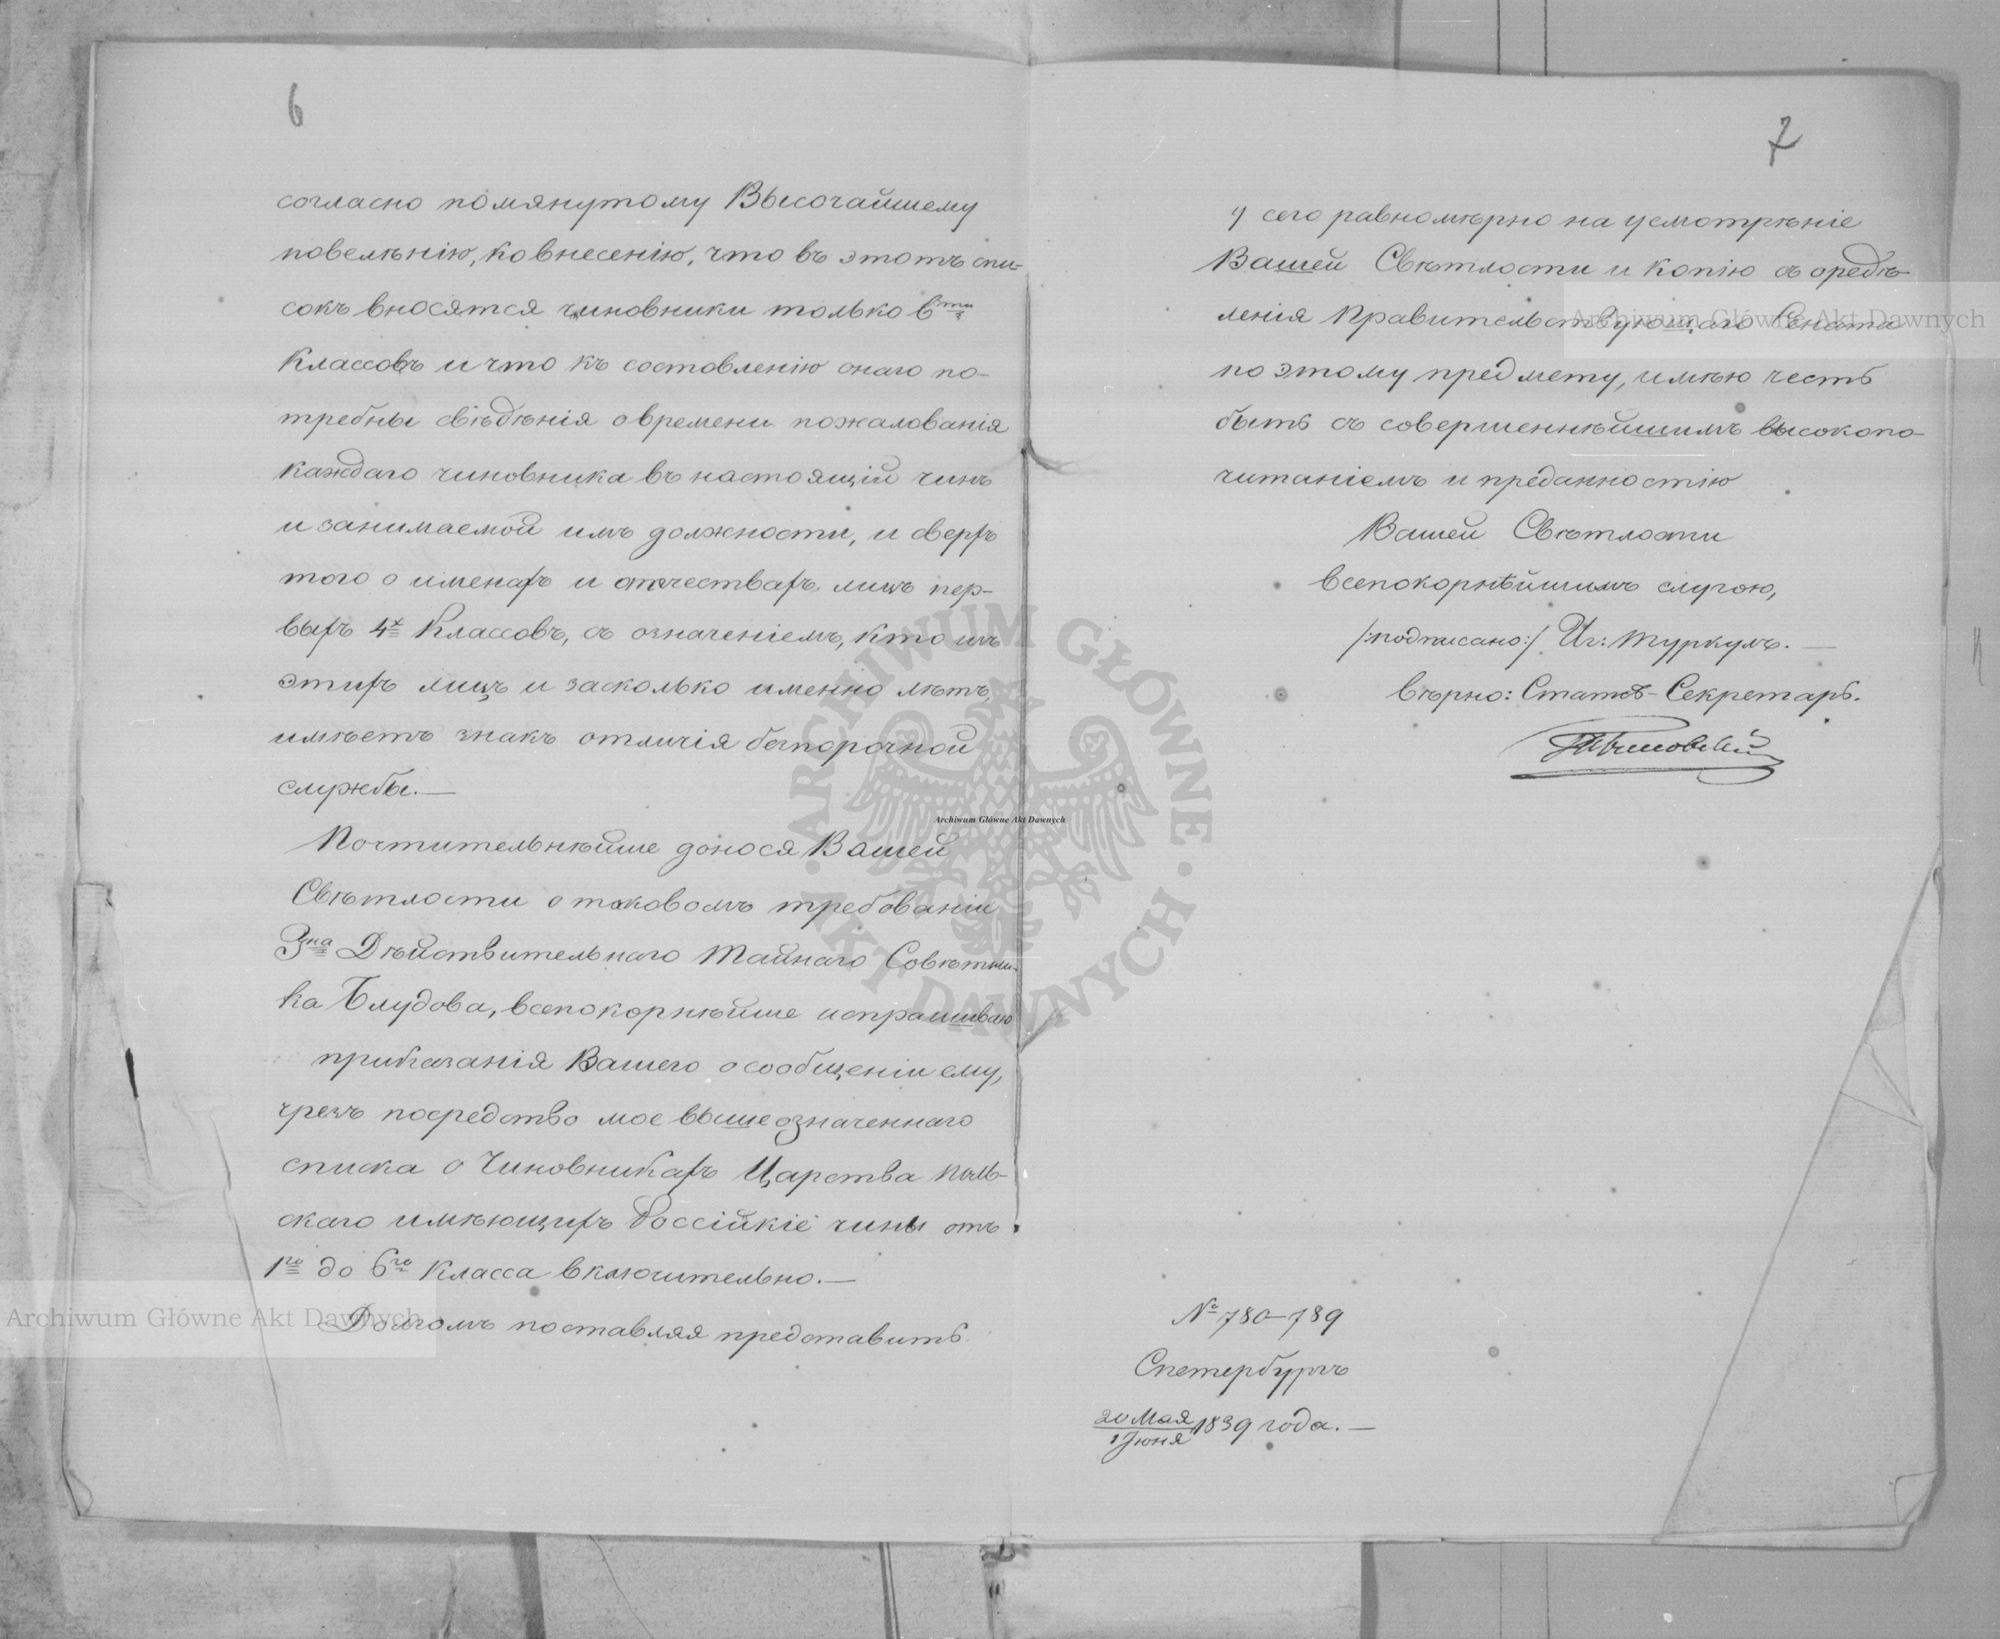 6
согласно помянутому Высочайшему
повелѣнію, ко внесенію, что въ этотъ спи-
сокъ вносятся чиновники только 6ти
Классовъ и что къ составленію онаго по-
требны свѣдѣнія о времени пожалованія
каждаго чиновника въ настоящій чинъ
и занимаемой имъ должности, и сверхъ
того о именахъ и отчествахъ лицъ пер-
выхъ 4х Классовъ, съ означеніемъ, кто изъ
этихъ лицъ и засколько именно лѣтъ,
имѣетъ знакъ отличія безпорочной
службы.—
Почтительнѣйше донося Вашей
Свѣтлости о таковомъ требованіи
Гна Дѣйствительнаго Тайнаго Совѣтни-
ка Блудова, всепокорнѣйше испрашиваю
приказанія Вашего о сообщеніи ему,
чрезъ посредство мое вышеозначеннаго
списка о Чиновникахъ Царства Поль-
скаго имѣющихъ Россійкіе чины отъ
1го до 6го Класса включительно.—
Долгомъ поставляя представить
7
у сего равномѣрно на усмотрѣніе
Вашей Свѣтлости и копію съ опредѣ-
ленія Правительствующаго Сената
по этому предмету, имѣю честь
быть съ совершеннѣйшимъ высокопо-
читаніемъ и преданностію
Вашей Свѣтлости
всепокорнѣйшимъ слугою,
/:подписано:/ Иг: Туркулъ.—
Вѣрно: Статсъ-Секретарь.
№ 780–789
Спетербургъ
20 Мая
1 Іюня 1839 года.—
Archiwum Główne Akt Dawnych
Archiwum Główne Akt Dawnych
Archiwum Główne Akt Dawnych
ARCHIWUM GŁÓWNE • AKT DAWNYCH •